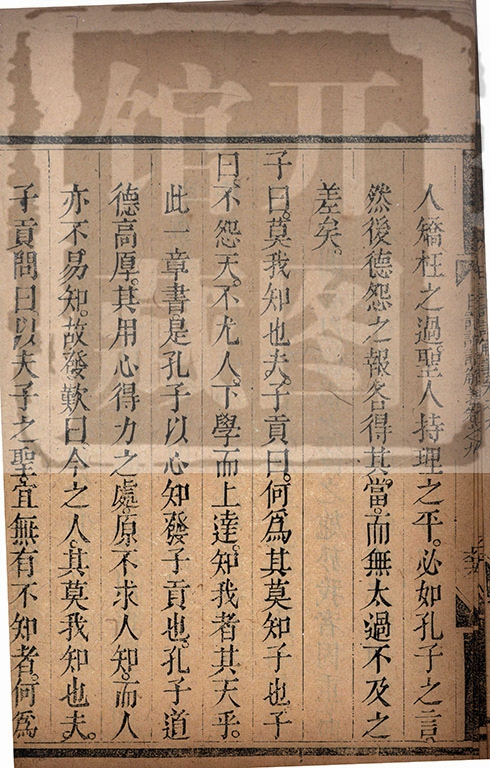 人矯枉之過聖人持理之平。必如孔子之言。
然後德怨之報各得其當。而無太過不及之
差矣。
子曰。莫我知也夫。子貢曰。何爲其莫知子也。子
曰。不怨天。不尤人。下學而上達。知我者其天乎。
此一章書。是孔子以心知發子貢也。孔子道
德高厚。其用心得力之處。原不求人知。而人
亦不易知。故發歎曰。今之人。其莫我知也夫。
子貢問曰。以夫子之聖。宜無有不知者。何爲